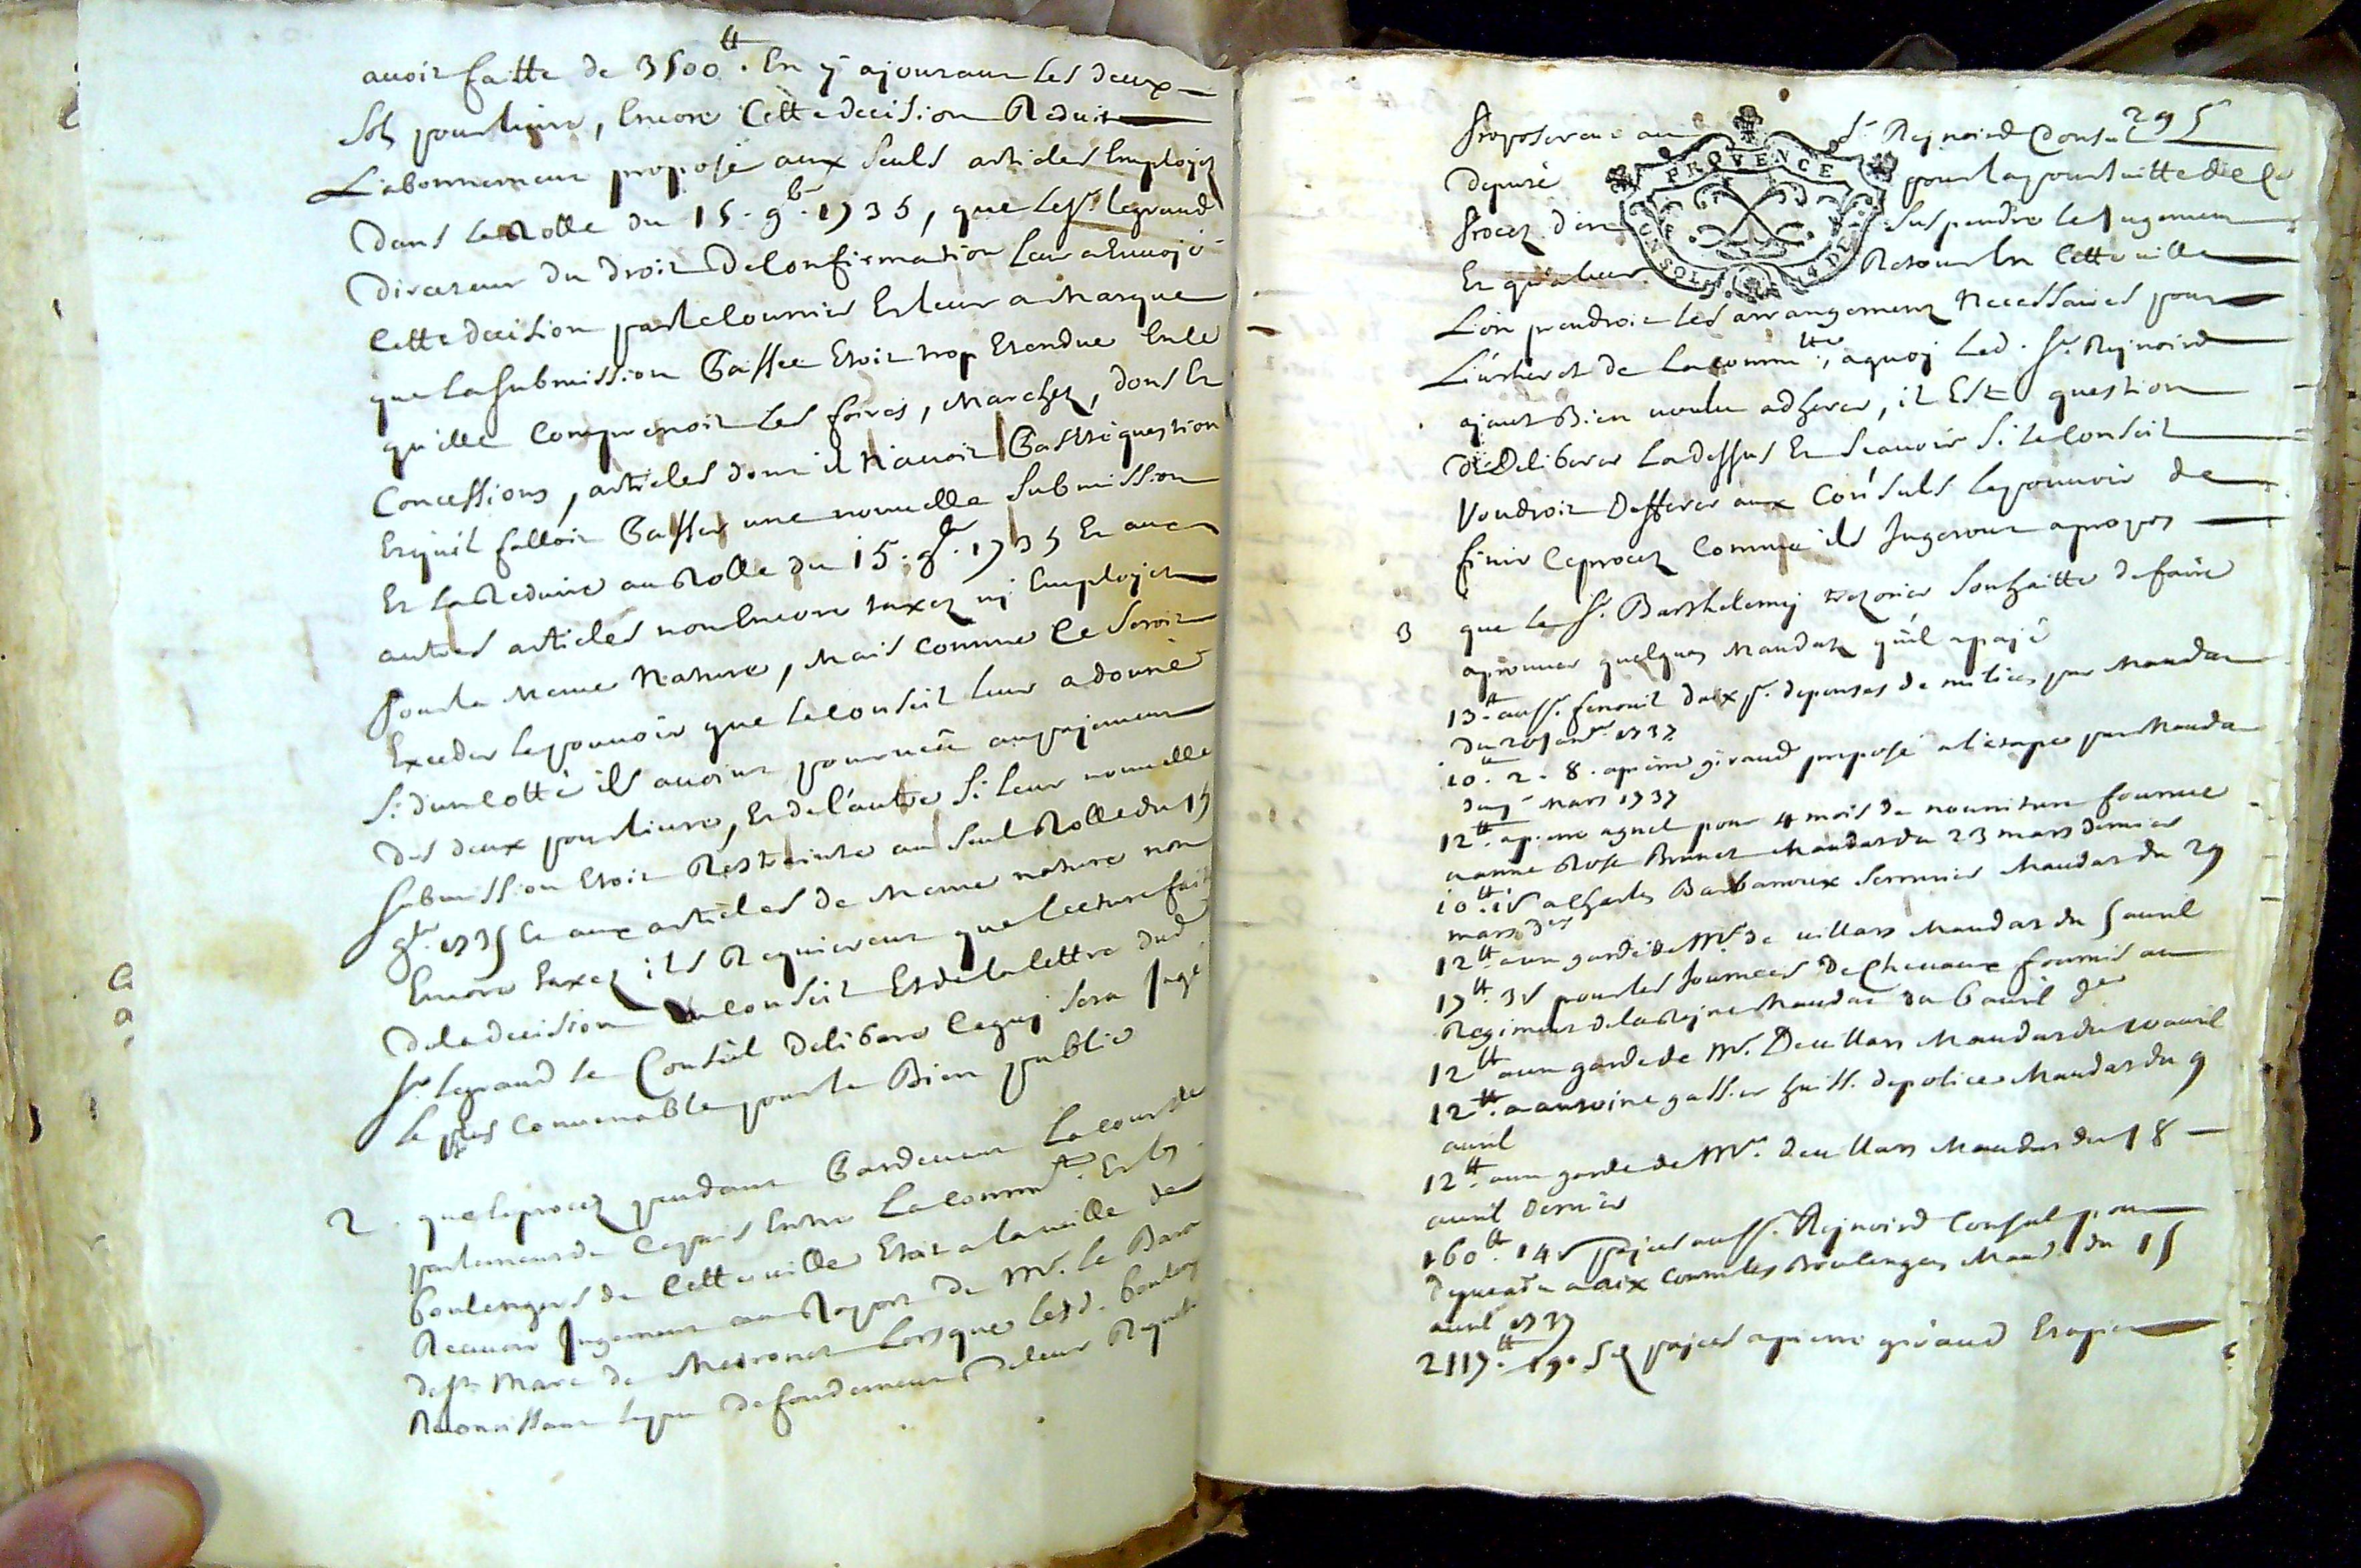 avoir faitte de 3500tt. En y ajoutant les deux
sols pour livre, Encore Cette decision Reduit
L'abonnement proposé aux seuls articles Employez
Dans le Rolle du 15. 9b. 1735, que le sr. legrand
Directeur du Droit De Confirmation leur a Envoyé
Cette decision par le Courrier Et leur a Marqué
que la submission Passée Etoit trop Etendue En ce
qu'elle Comprenoit les foires, Marchez, dons Et
Concessions, articles dont il N'avoit Pas Eté question
Et qu'il falloit Passer une nouvelle submission
Et la Reduire au Rolle du 15. 9br. 1735 Et aux
autres articles non Encore taxez ni Employez
Pour la Meme Nature, Mais comme Ce seroit
Exceder le pouvoir que le conseil leur a donné
Si d'un Cotté ils avoint pourveu au payement
des deux pour livre, Et de l'autre si leur nouvelle
submission Etoit Restrainte au seul Rolle du 15
9br. 1735 Et aux articles de Meme nature non
Encore taxez ils Requierent que lecture fait
De la decision du conseil Et de la lettre dud
sr. legrand le Conseil delibere Ce qui sera Jugé
le plus Convenable pour le Bien public
2. que le procez pendant Pardevant la cour de
parlement de Ce pais Entre la commté. Et les
boulengers de Cette ville Etoit a la veille de
Recevoir Jugement au Raport de Mr. le Baron
de st. Marc de Meironet lorsque lesd. boulengers
Reconnissant le peu de fondement De leur Requete
295
Proposerent au sr. Reynoird Consul
Deputé pour la poursuitte de Ce
Procez d'en suspendre le Jugement
Et qu'a leur Retour En Cette ville
L'on prendroit les arrangemens Necessaires pour
L'interet de la commté., a quoy led. sr. Reynoird
ayant Bien voulu adherer, il Est question
de Deliberer la dessus Et Scavoir si le Conseil
Voudroit Defferer aux Consuls le pouvoir de
finir Ce procez Comme ils Jugeront a propos
3 que le sr. Barthelemy trezorier souhaitte de faire
aprouver quelques Mandats qu'il a payé
13tt au sr. fenouil d'aix pr. depenses de milices par Mandat
du 20 janer 1737
10tt. 2. 8. a pierre giraud preposé a l'etape par Mandat
du 5 Mars 1737
12tt. a pierre agnel pour 4 mois de nourriture fournie
a anne Rose Brunet Mandat du 23 mars dernier
10tt. 1s a Charles Barbaroux serrurier Mandat du 29
mars der
12tt a un garde de Mr. de villars Mandat du 5 avril
17tt. 3s pour les Journées De Chevaux fournis au
Regiment de la Reyne Mandat du 6 avril der
12tt a un garde de Mr. De villars Mandat du 10 avril
12tt. a antoine gassier huiss. de police Mandat du 9
avril
12tt. a un garde de Mr. de villars Mandat du 18
avril Dernier
160tt. 14s payez au sr. Reynoird Consul pour
a aix contre les Boulengers Mand. du 15
avril 1737
2117tt. 19s. 5d payez a pierre giraud Etapier
PROVENCE